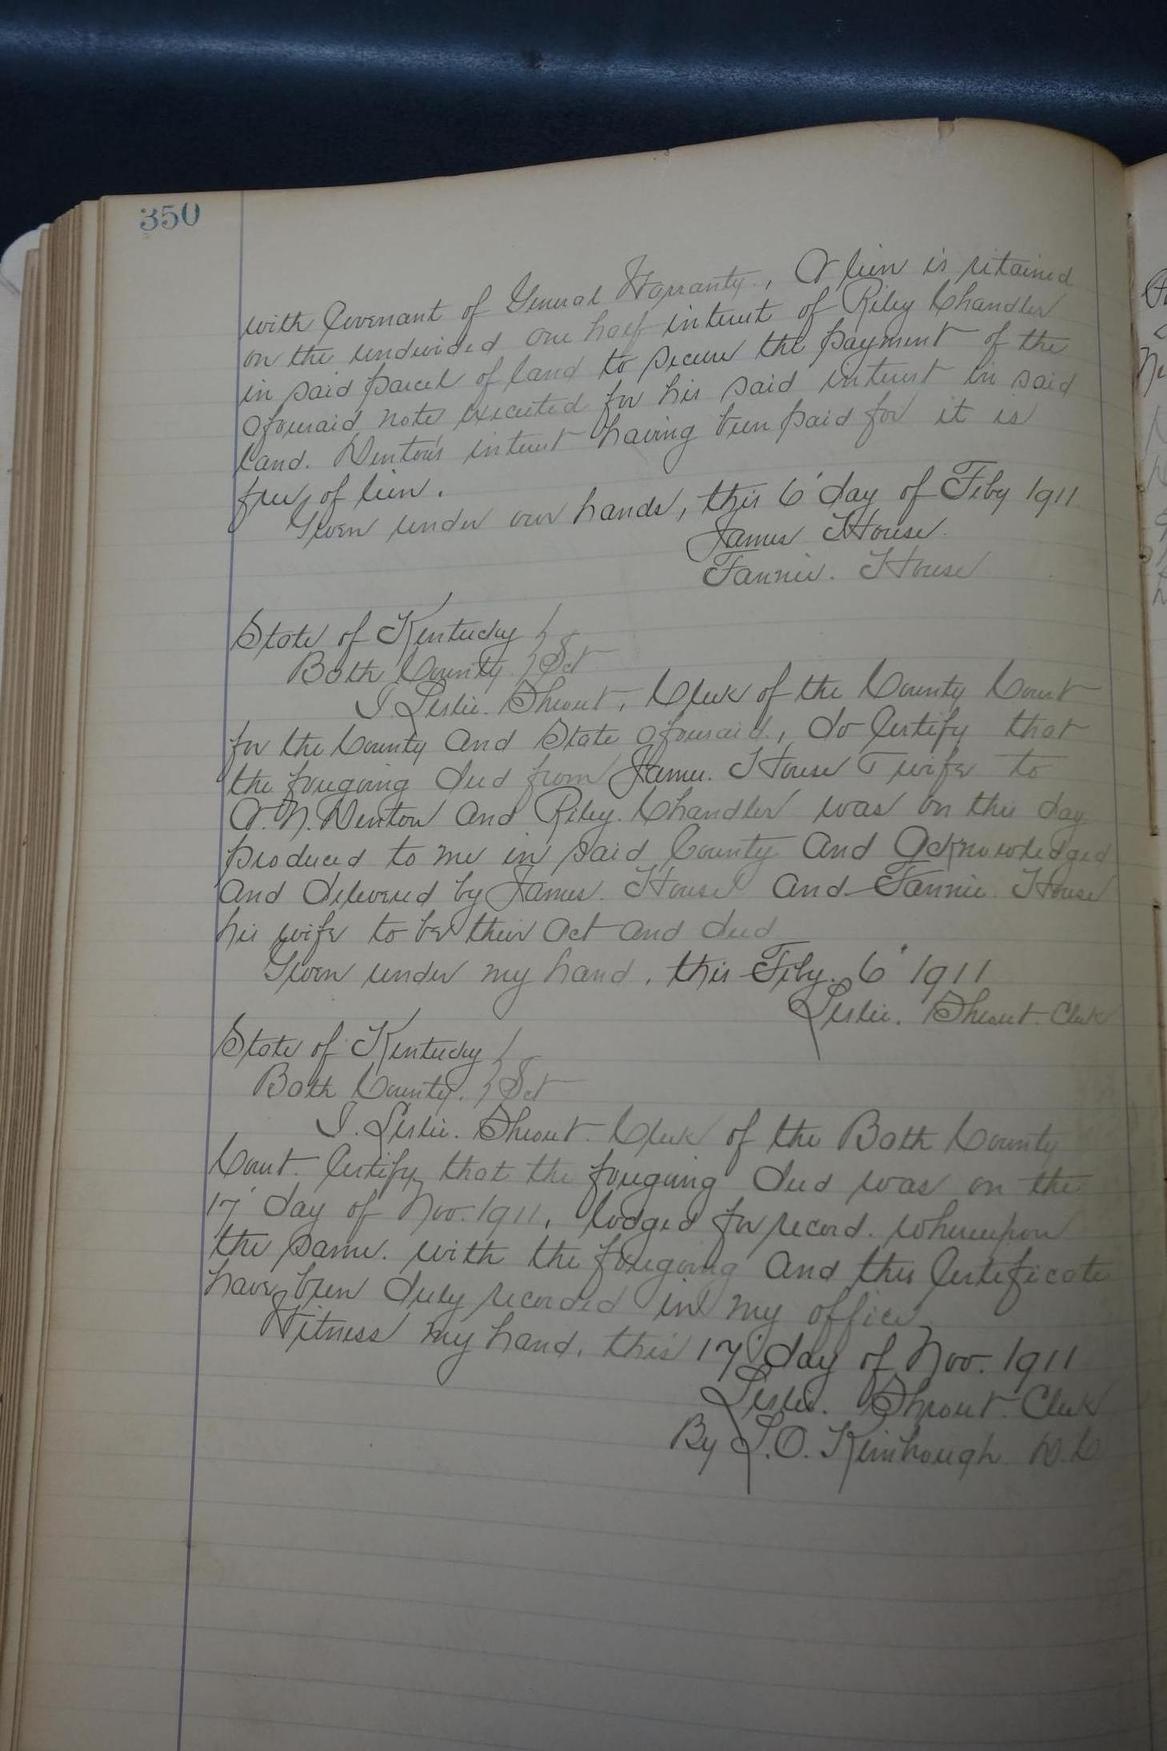 350
with Covenant of General Warranty., A lien is retained
on the undivided one half interest of Riley Chandler
in said parcel of land to secure the payment of the
aforesaid note executed for his said interest in said
land. Denton's interest having been paid for it is
free, of lien.
Given under our hands, this 6' day of Feby 1911
James House.
Fannie. House
State of Kentucky }
Bath County. } Sct
I. Leslie. Shrout, Clerk of the County Court
for the County and State aforesaid., do Certify that
the foregoing deed from James. House & wife to
A. N. Denton and Riley. Chandler was on this day
produced to me in said County and Acknowledged
and delivered by James. House and Fannie. House
his wife to be their act and deed
Given under my hand. this Feby. 6' 1911
Leslie. Shrout. Clerk
State of Kentucky }
Bath County. } Sct
I. Leslie. Shrout. Clerk of the Bath County
Court. Certify, that the foregoing deed was on the
17' day of Nov. 1911, lodged for record. whereupon
the same. with the foregoing and this Certificate
have been duly recorded in my office
Witness my hand. this 17' day of Nov. 1911
Leslie. Shrout. Clerk
By J. O. Kimbrough D. C